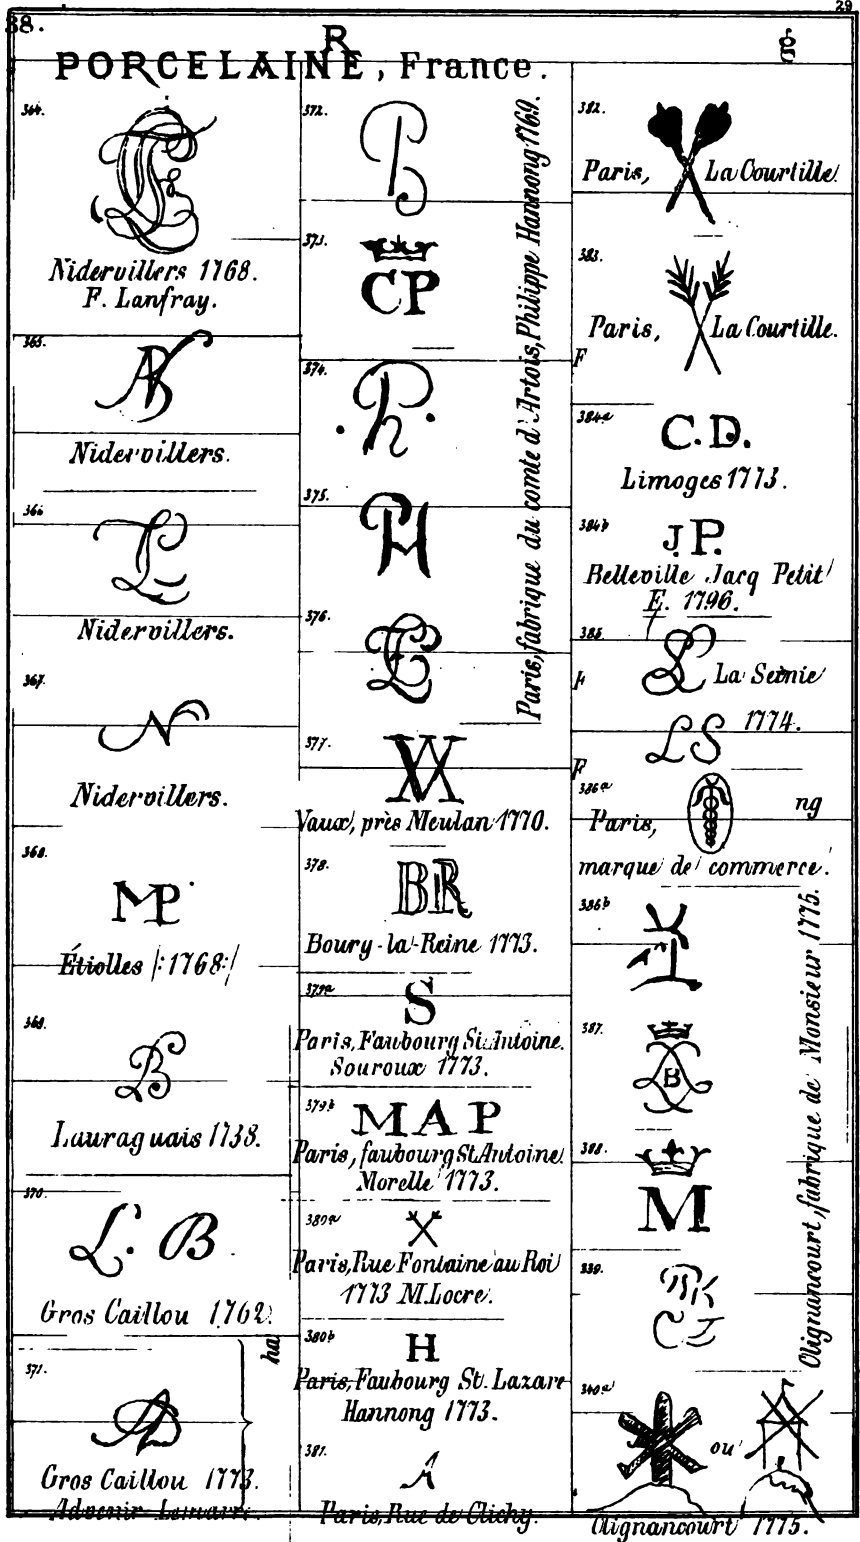 38.
29
R
g
PORCELAINE, France.
364.
Nidervillers 1768.
F. Lanfray.
365.
Nidervillers.
366
Nidervillers.
367.
N
Nidervillers.
368.
MP
Étiolles /:1768:/
369.
LB
Lauraguais 1738.
370.
L. B
Gros Caillou 1762.
ha
371.
Gros Caillou 1773.
Advenir Lamarre.
372.
373.
CP
374.
375.
PH
376.
Paris, fabrique du comte d'Artois, Philippe Hannong 1769.
377.
Vaux, près Meulan 1770.
378.
BR
Boury-la-Reine 1773.
379a
S
Paris, Faubourg St. Antoine.
Souroux 1773.
379b
MAP
Paris, faubourg St. Antoine
Morelle 1773.
380a
Paris, Rue Fontaine au Roi
1773 M. Locre.
380b
H
Paris, Faubourg St. Lazare
Hannong 1773.
381.
Paris, Rue de Clichy.
382.
Paris, La Courtille.
383.
Paris, La Courtille.
F
384a
C.D.
Limoges 1773.
384b
J.P.
Belleville Jacq Petit
E. 1796.
385.
F
La Seinie
LS 1774.
F
386a
Paris, ng
marque de commerce.
386b
387.
B
388.
M
339.
340a
ou
Clignancourt, fabrique de Monsieur 1775.
Clignancourt 1775.